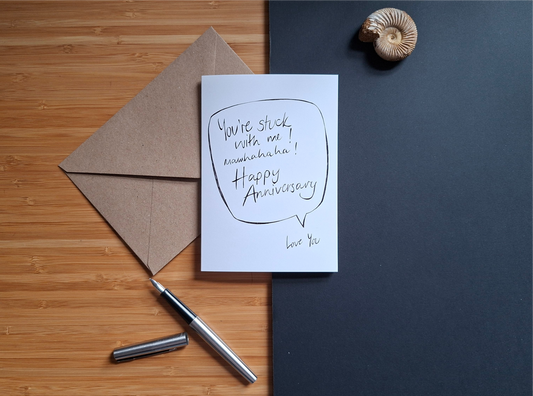 You're stuck
with me!
mawhahaha!
Happy
Anniversary
Love You